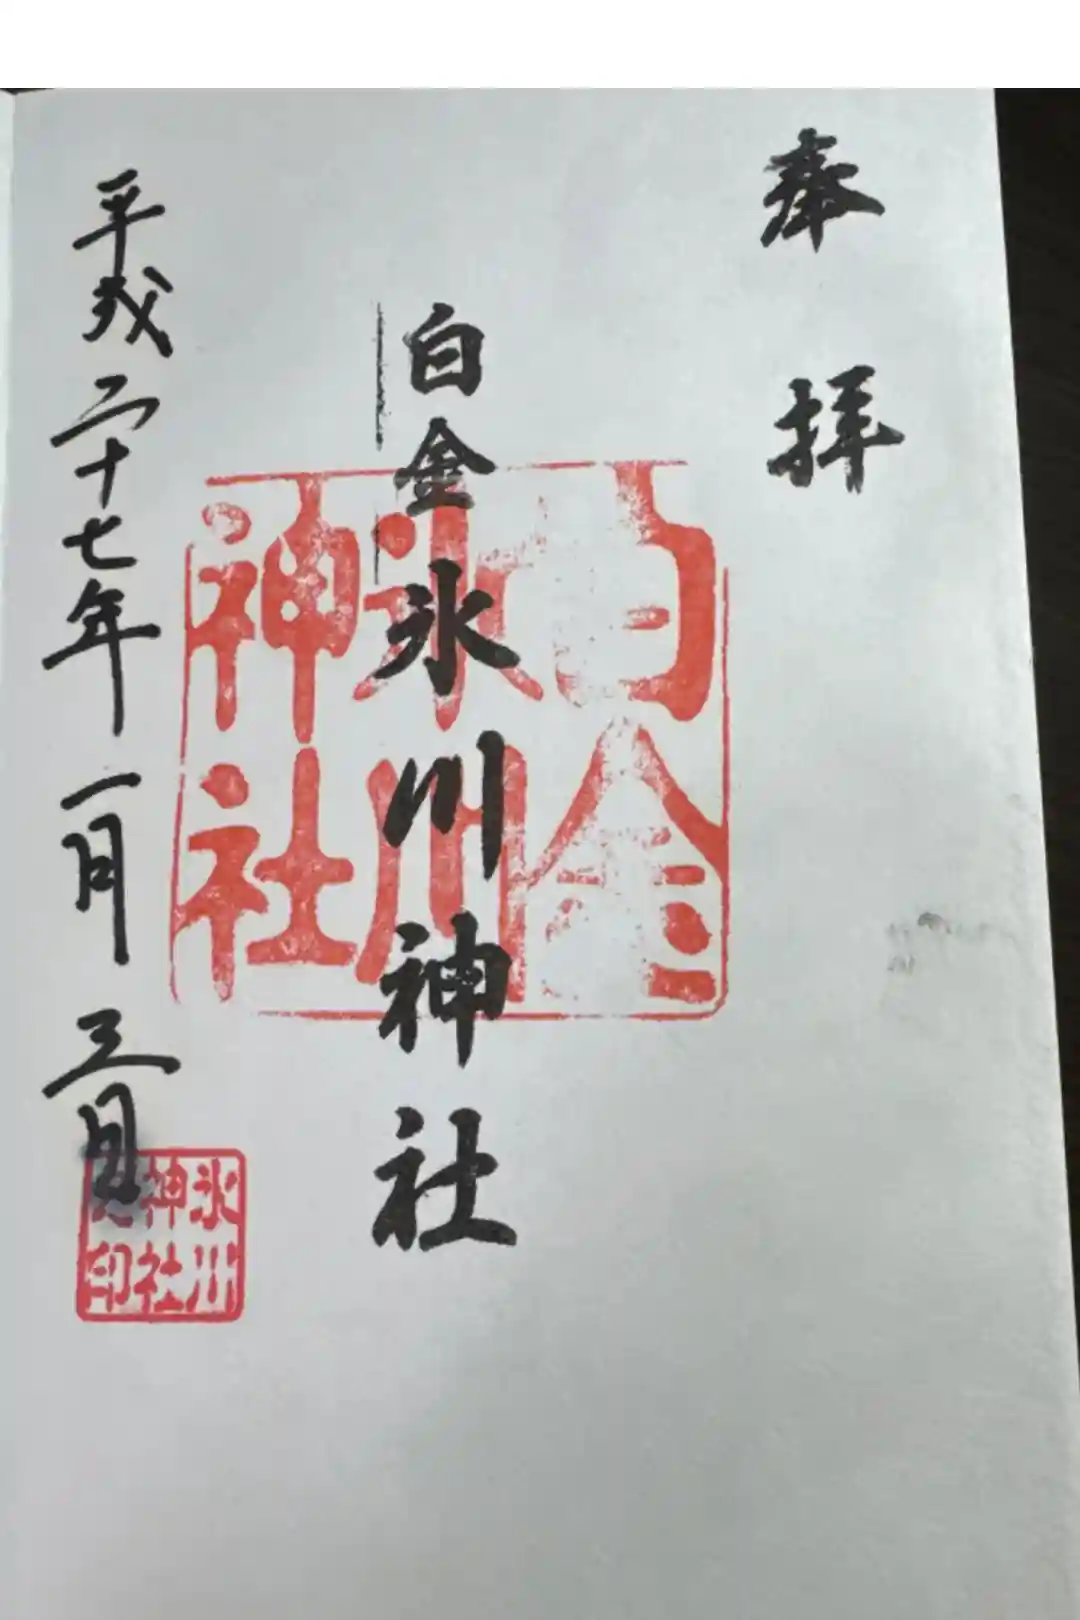 奉拝
白金氷川神社
平成二十七年一月三日
白金
氷川
神社
氷川
神社
印